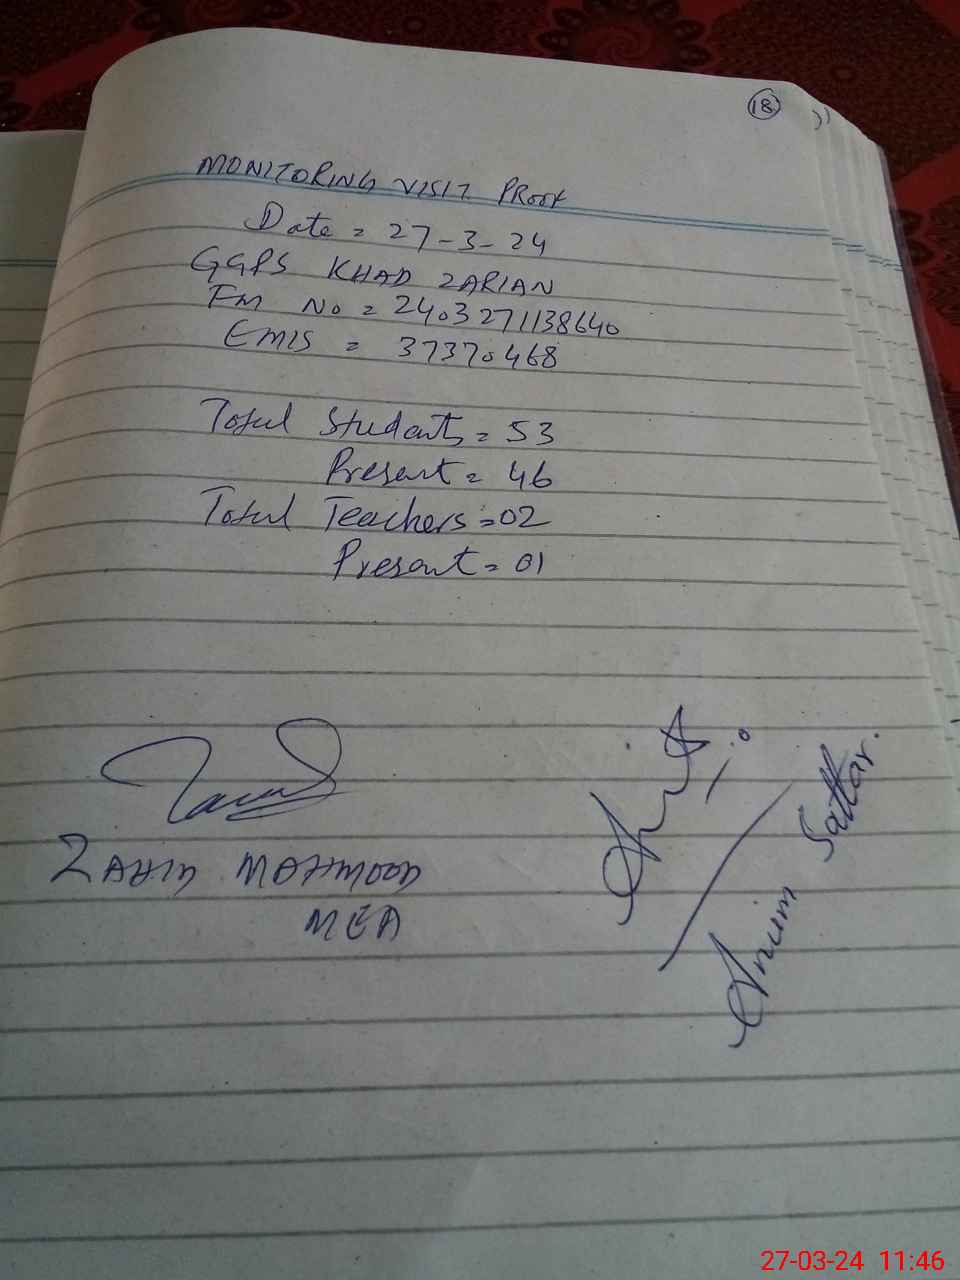 18
MONITORING VISIT PROOF
Date = 27-3-24
GGPS KHAD ZARIAN
FM No = 2403271138640
EMIS = 37370468
Total Students = 53
Present = 46
Total Teachers = 02
Present = 01
ZAHID MAHMOOD
MEA
Anum Sattar.
27-03-24 11:46